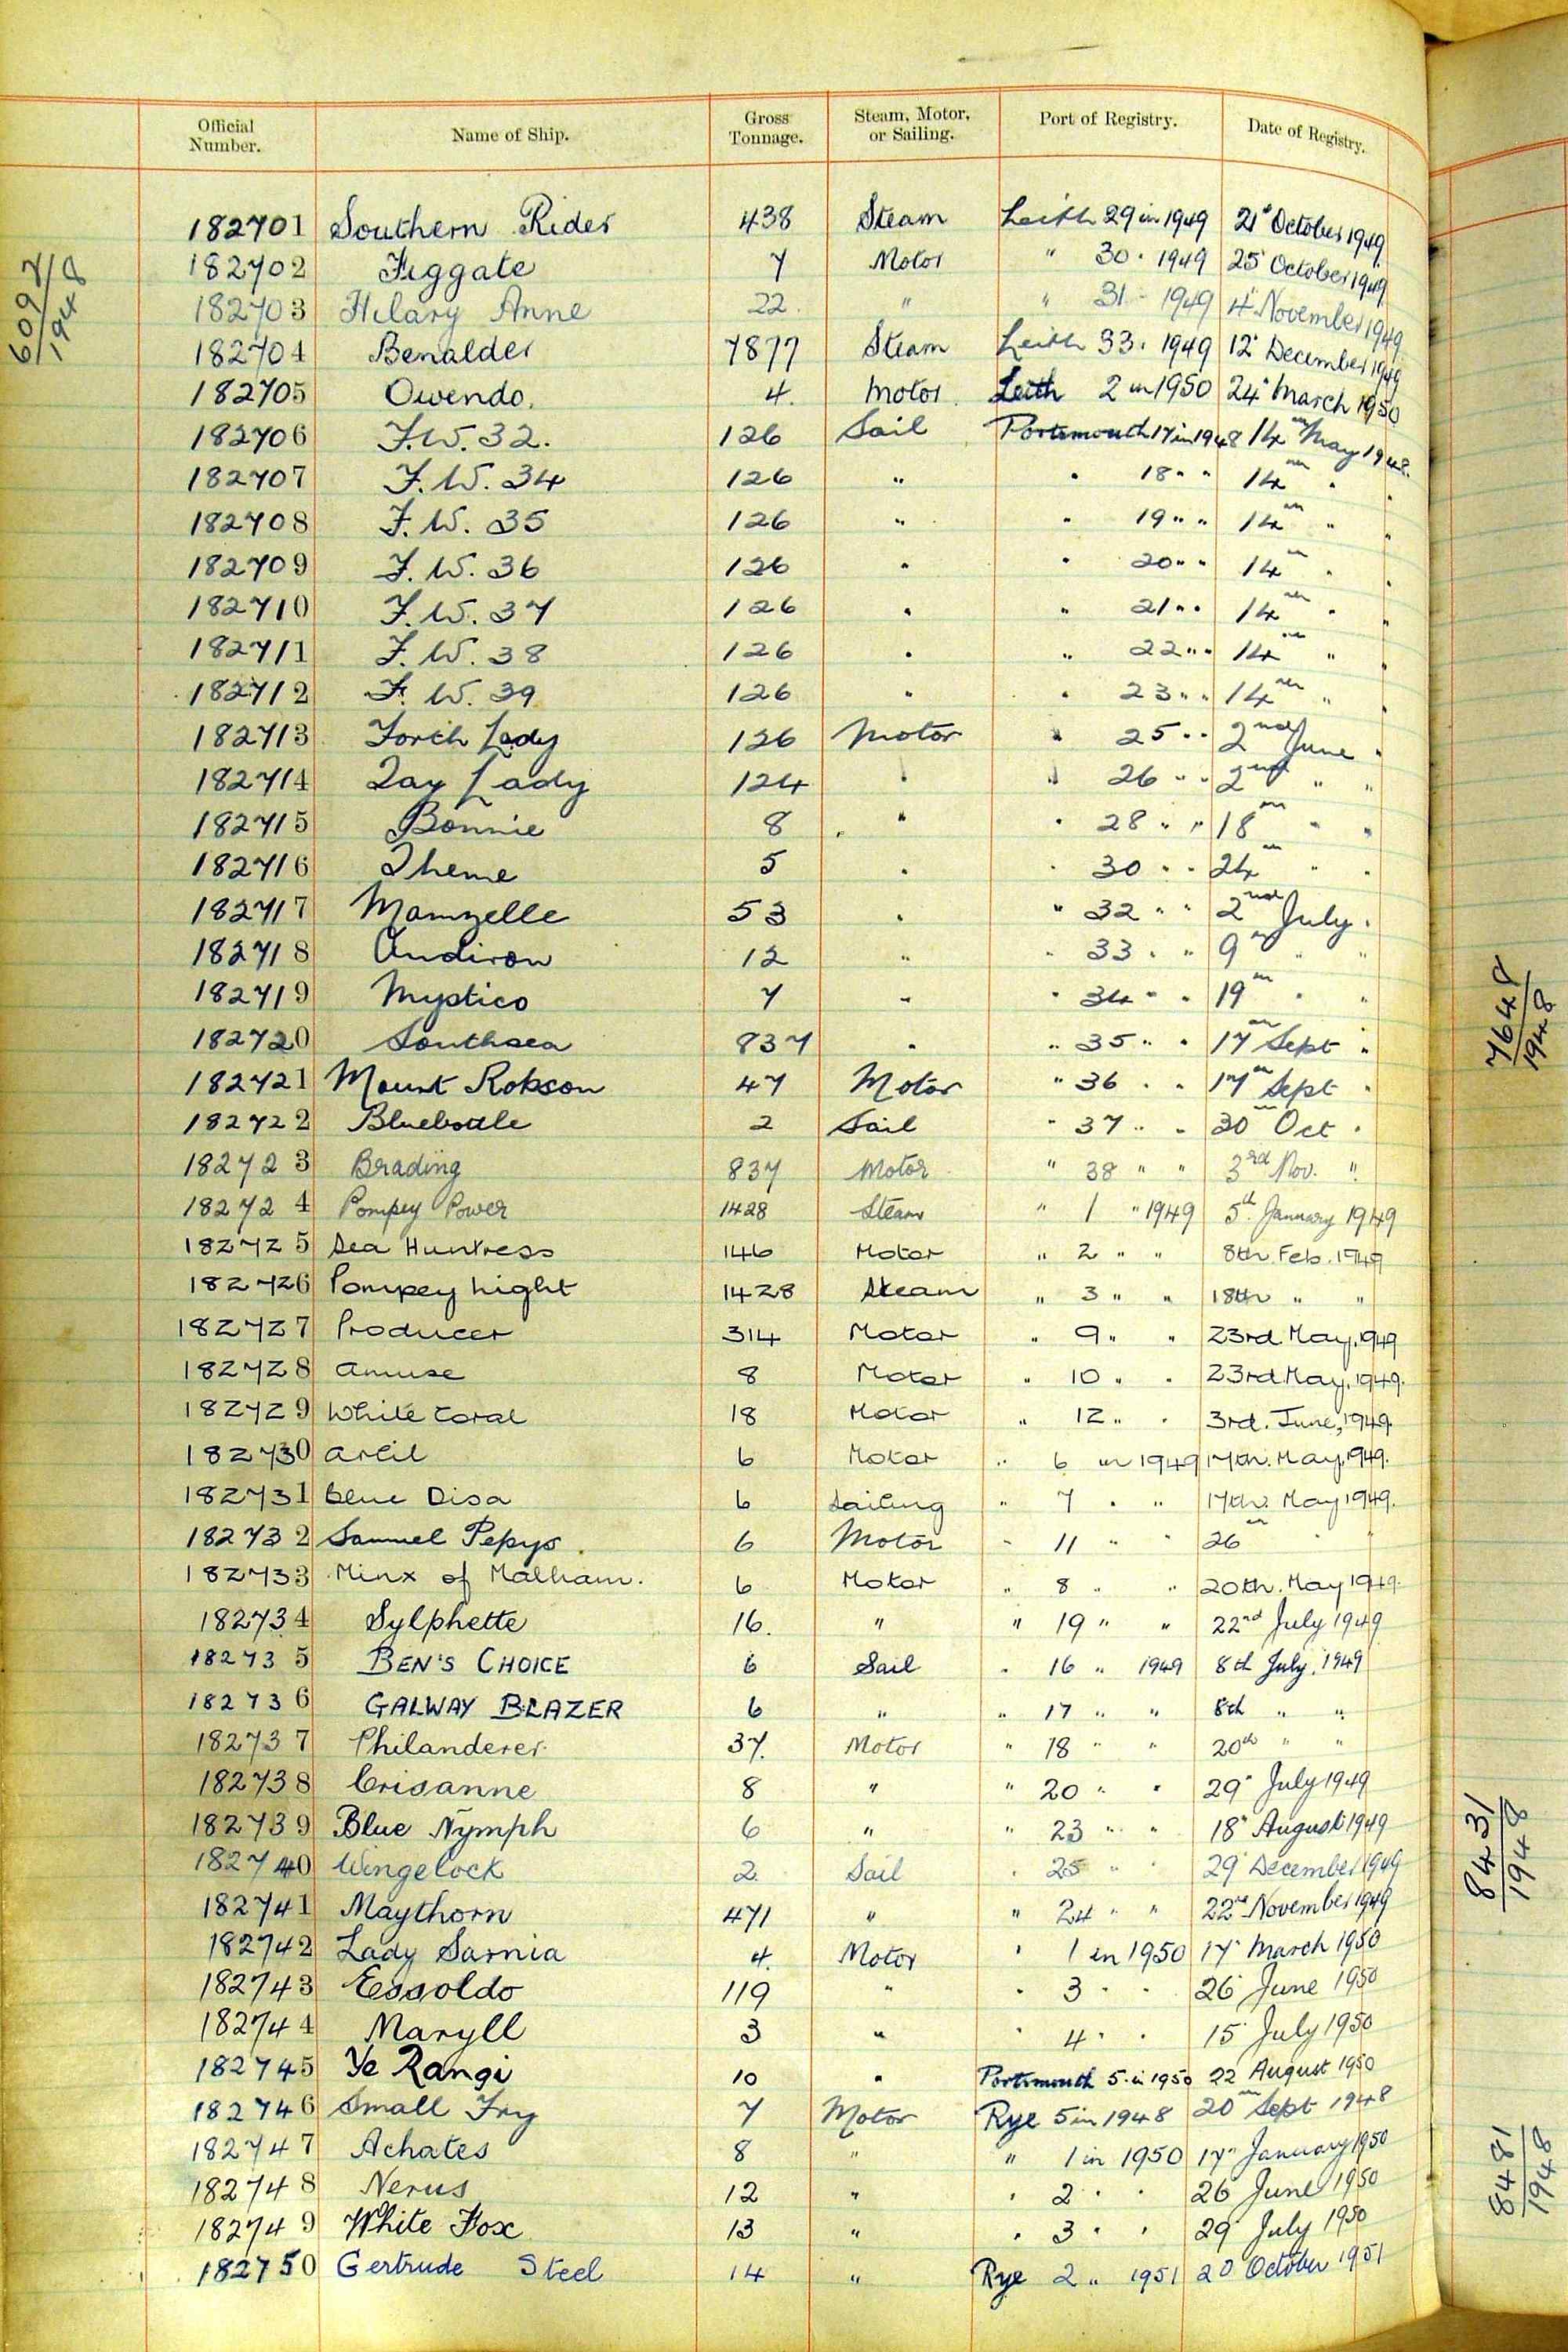 Official Number. Name of Ship. Gross Tonnage. Steam, Motor, or Sailing. Port of Registry. Date of Registry.
182701 Southern Rider 438 Steam Leith 29 in 1949 21st October 1949
182702 Figgate 7 Motor " 30 " 1949 25 October 1949
182703 Hilary Anne 22 " " 31 " 1949 4 November 1949
182704 Benalder 7877 Steam Leith 33 " 1949 12 December 1949
182705 Owendo. 4. Motor Leith 2 in 1950 24 March 1950
182706 F.W. 32. 126 Sail Portsmouth 17 in 1948 14th May 1948.
182707 F.W. 34 126 " " 18 " " 14th " "
182708 F.W. 35 126 " " 19 " " 14th " "
182709 F.W. 36 126 " " 20 " " 14th " "
182710 F.W. 37 126 " " 21 " " 14th " "
182711 F.W. 38 126 " " 22 " " 14th " "
182712 F.W. 39 126 " " 23 " " 14th " "
182713 Forth Lady 126 Motor " 25 " " 2nd June "
182714 Tay Lady 124 " " 26 " " 2nd " "
182715 Bonnie 8 " " 28 " " 18th " "
182716 Theme 5 " " 30 " " 24th " "
182717 Mamzelle 53 " " 32 " " 2nd July "
182718 Andiron 12 " " 33 " " 9th " "
182719 Mystico 7 " " 34 " " 19th " "
182720 Southsea 837 " " 35 " " 17th Sept "
182721 Mount Robson 47 Motor " 36 " " 17th Sept "
182722 Bluebottle 2 Sail " 37 " " 30th Oct "
182723 Brading 837 Motor " 38 " " 3rd Nov. "
182724 Pompey Power 1428 Steam " 1 " 1949 5th January 1949
182725 Sea Huntress 146 Motor " 2 " " 8th Feb. 1949
182726 Pompey Light 1428 Steam " 3 " " 18th " "
182727 Producer 314 Motor " 9 " " 23rd May, 1949
182728 Amuse 8 Motor " 10 " " 23rd May, 1949.
182729 White Coral 18 Motor " 12 " " 3rd. June, 1949.
182730 6 Motor " 6 in 1949 17th. May, 1949.
182731 Blue Disa 6 Sailing " 7 " " 17th. May 1949.
182732 Samuel Pepys. 6 Motor " 11 " " 26th " "
182733 Minx of Malham. 6 Motor " 8 " " 20th. May 1949.
182734 Sylphette 16. " " 19 " " 22nd July 1949
182735 BEN'S CHOICE 6 Sail " 16 " 1949 8th July, 1949
182736 GALWAY BLAZER 6 " " 17 " " 8th " "
182737 Philanderer 37. Motor " 18 " " 20th " "
182738 Crisanne 8 " " 20 " " 29 July 1949
182739 Blue Nymph 6 " " 23 " " 18 August 1949
182740 Wingelock 2. Sail " 25 " " 29 December 1949
182741 Maythorn 471 " " 24 " " 22nd November 1949
182742 Lady Sarnia 4. Motor " 1 in 1950 17 March 1950
182743 Essoldo 119 " " 3 " " 26 June 1950
182744 Maryll 3 " " 4 " " 15 July 1950
182745 Ye Rangi 10 " Portsmouth 5 in 1950 22 August 1950
182746 Small Fry 7 Motor Rye 5 in 1948 20th Sept 1948
182747 Achates 8 " " 1 in 1950 17 January 1950
182748 Nerus 12 " " 2 " " 26 June 1950
182749 White Fox 13 " " 3 " " 29 July 1950
182750 Gertrude Steel 14 " Rye 2 " 1951 20 October 1951
6097/1948
7648/1948
8431/1948
8481/1948